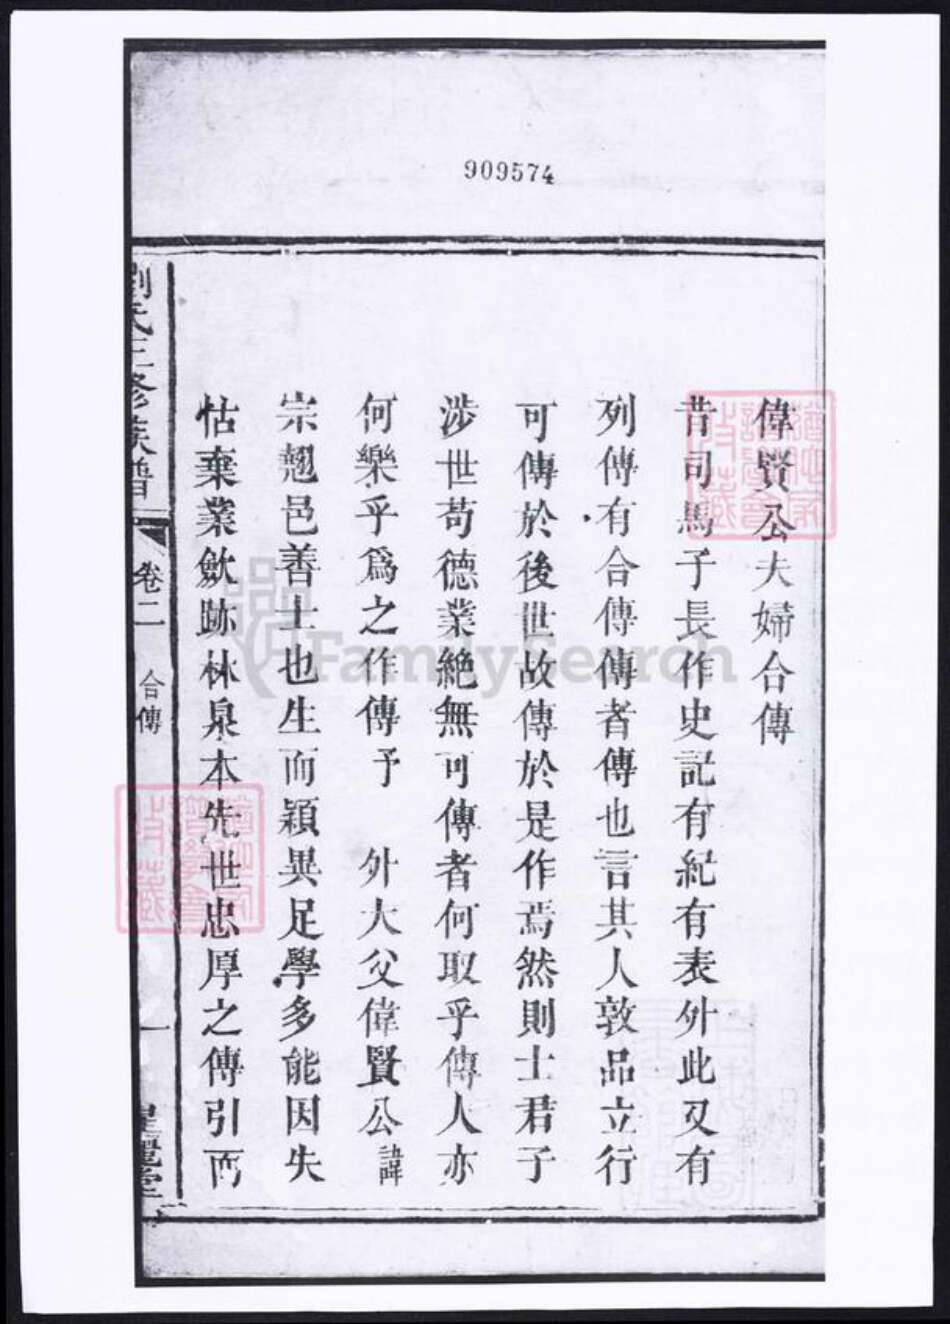 909574
偉賢公夫婦合傳
昔司馬子長作史記有紀有表外此又有
列傳有合傳傳者傳也言其人敦品立行
可傳於後世故傳於是作焉然則士君子
涉世苟德業絶無可傳者何取乎傳人亦
何樂乎爲之作傳予 外大父偉賢公諱
宗翹邑善士也生而穎異足學多能因失
怙棄業歛跡林泉本先世忠厚之傳引而
劉氏三修族譜 卷二 合傳 一
FamilySearch